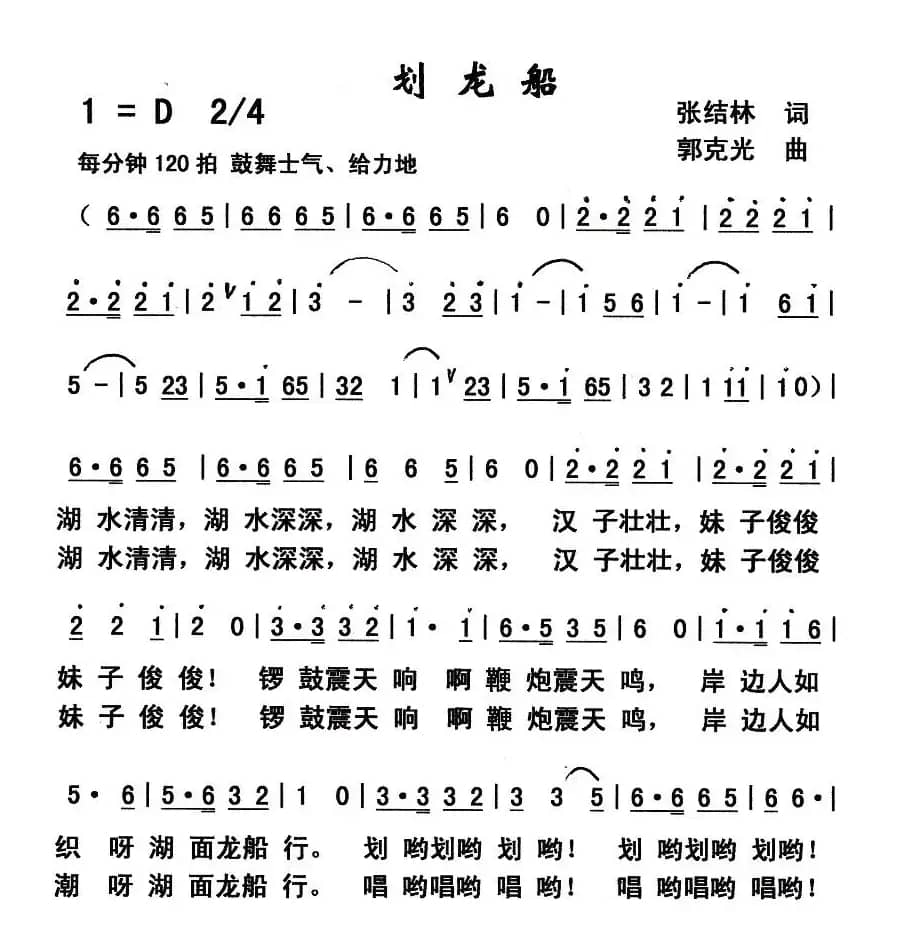 划龙船
1 = D 2/4
张结林 词
每分钟120拍 鼓舞士气、给力地
郭克光 曲
( 6·6 6 5 | 6 6 6 5 | 6·6 6 5 | 6 0 | 2·2 2 1 | 2 2 2 1 |
2·2 2 1 | 2 V 1 2 | 3 - | 3 2 3 | 1 - | 1 5 6 | 1 - | 1 6 1 |
5 - | 5 23 | 5·1 65 | 32 1 | 1 V 23 | 5·1 65 | 3 2 | 1 11 | 10 ) |
6·6 6 5 | 6·6 6 5 | 6 6 5 | 6 0 | 2·2 2 1 | 2·2 2 1 |
湖 水清清，湖 水深深，湖 水 深 深， 汉 子壮壮，妹 子俊俊
湖 水清清，湖 水深深，湖 水 深 深， 汉 子壮壮，妹 子俊俊
2 2 1 | 2 0 | 3·3 3 2 | 1· 1 | 6·5 3 5 | 6 0 | 1·1 1 6 |
妹 子 俊 俊！ 锣 鼓震天 响 啊 鞭 炮震天 鸣， 岸 边人如
妹 子 俊 俊！ 锣 鼓震天 响 啊 鞭 炮震天 鸣， 岸 边人如
5· 6 | 5·6 3 2 | 1 0 | 3·3 3 2 | 3 3 5 | 6·6 6 5 | 6 6· |
织 呀 湖 面龙船 行。 划 哟划哟 划 哟！ 划 哟划哟 划哟！
潮 呀 湖 面龙船 行。 唱 哟唱哟 唱 哟！ 唱 哟唱哟 唱哟！